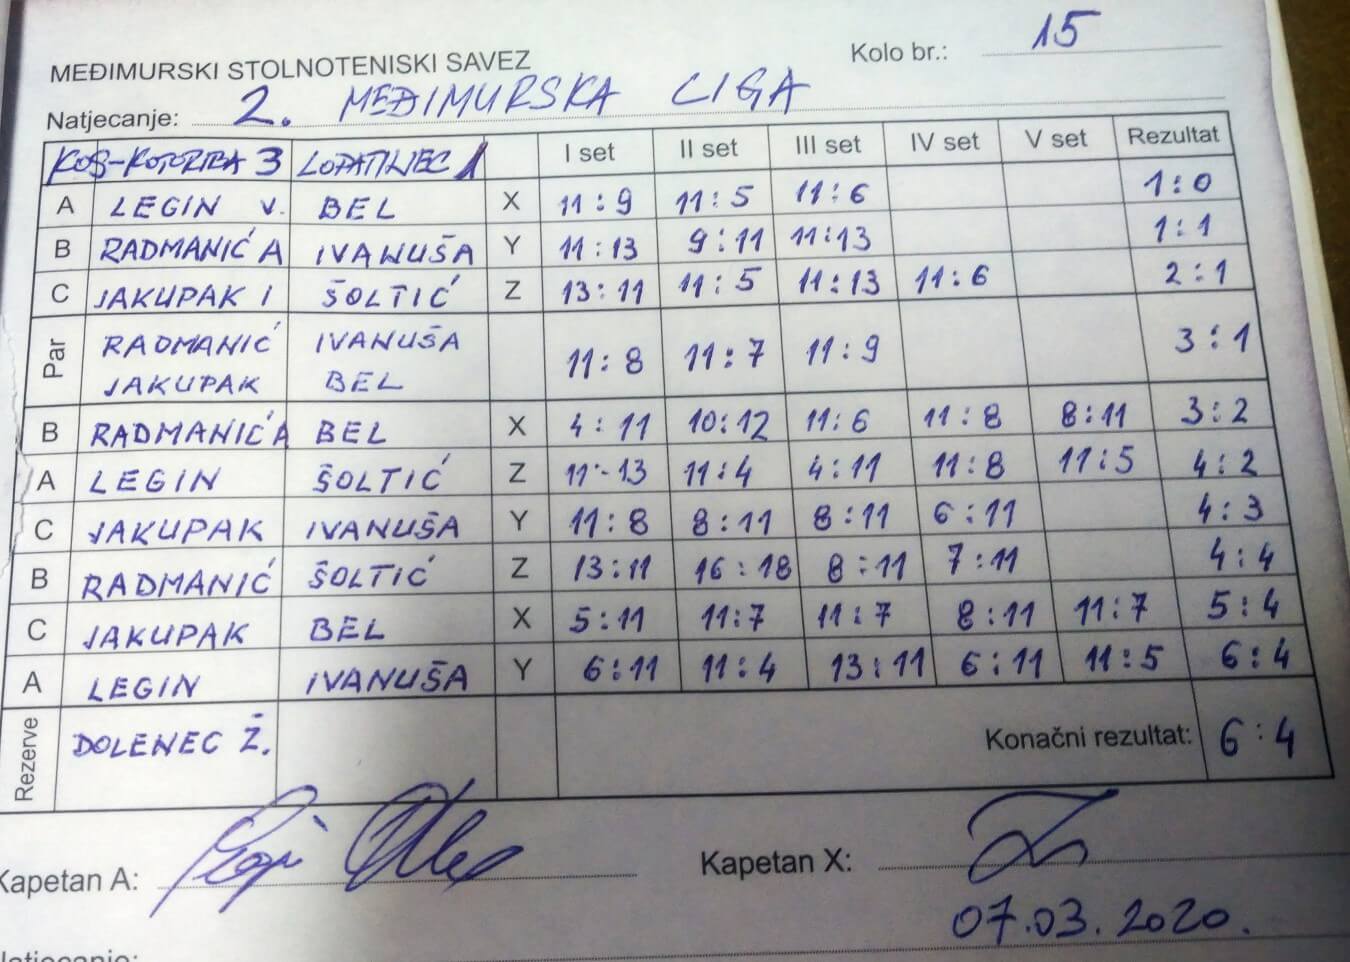 MEĐIMURSKI STOLNOTENISKI SAVEZ
Kolo br.: 15
Natjecanje: 2. MEĐIMURSKA LIGA
KOŠ-KOTORIBA 3 LOPATINEC 1 I set II set III set IV set V set Rezultat
A LEGIN V. BEL X 11:9 11:5 11:6 1:0
B RADMANIĆ A IVANUŠA Y 11:13 9:11 11:13 1:1
C JAKUPAK I ŠOLTIĆ Z 13:11 11:5 11:13 11:6 2:1
Par RADMANIĆ IVANUŠA
JAKUPAK BEL 11:8 11:7 11:9 3:1
B RADMANIĆ A BEL X 4:11 10:12 11:6 11:8 8:11 3:2
A LEGIN ŠOLTIĆ Z 11-13 11:4 4:11 11:8 11:5 4:2
C JAKUPAK IVANUŠA Y 11:8 8:11 8:11 6:11 4:3
B RADMANIĆ ŠOLTIĆ Z 13:11 16:18 8:11 7:11 4:4
C JAKUPAK BEL X 5:11 11:7 11:7 8:11 11:7 5:4
A LEGIN IVANUŠA Y 6:11 11:4 13:11 6:11 11:5 6:4
Rezerve DOLENEC Ž. Konačni rezultat: 6:4
Kapetan A: Kapetan X:
07.03.2020.
Natjecanje: